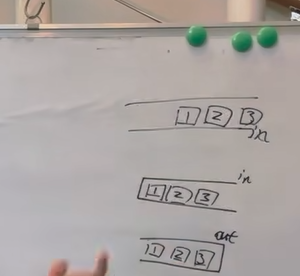 1 2 3
in
in
1 2 3
out
1 2 3